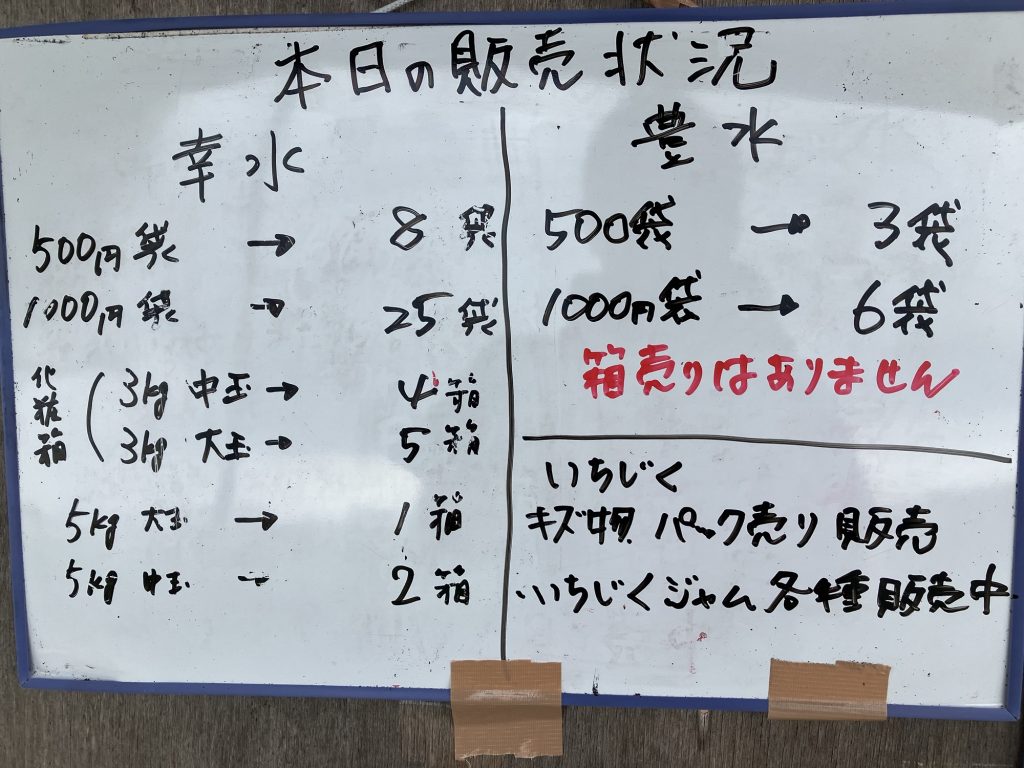 本日の販売状況
幸水
500円袋 → 8袋
1000円袋 → 25袋
化粧箱
3kg 中玉 → 4箱
3kg 大玉 → 5箱
5kg 大玉 → 1箱
5kg 中玉 → 2箱
豊水
500袋 → 3袋
1000円袋 → 6袋
箱売りはありません
いちじく
キズ物 パック売り 販売
いちじくジャム各種販売中